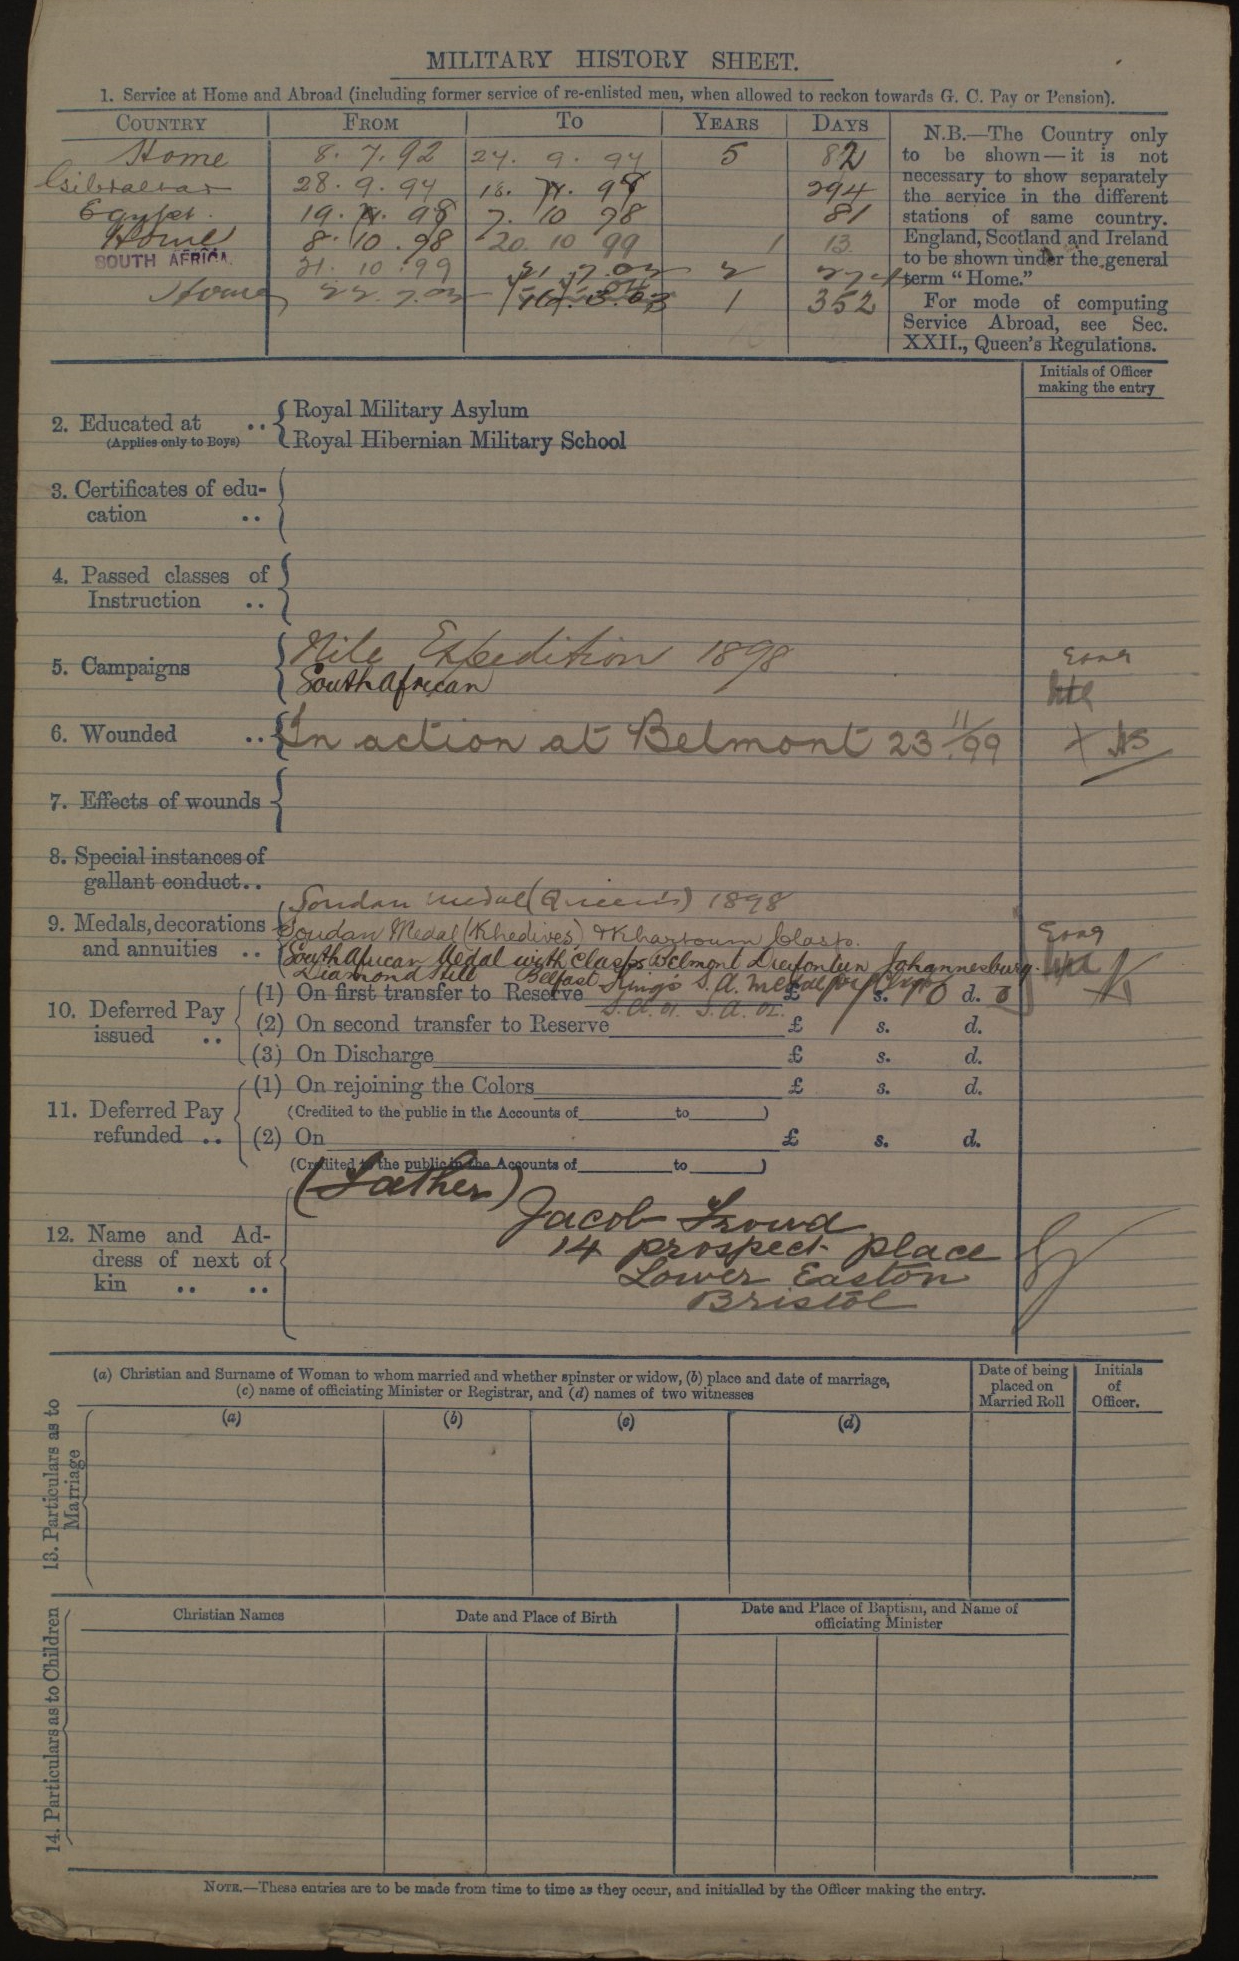 MILITARY HISTORY SHEET.
1. Service at Home and Abroad (including former service of re-enlisted men, when allowed to reckon towards G. C. Pay or Pension).
COUNTRY FROM TO YEARS DAYS
Home 8. 7. 92 27. 9. 97 5 82
Gibraltar 28. 9. 97 18. 7. 98 294
Egypt. 19. 7. 98 7. 10 98 81
Home 8. 10. 98 20. 10 99 1 13
SOUTH AFRICA 21. 10. 99 21. 7. 02 2 274
Home 22. 7. 02 1 352
N.B.—The Country only
to be shown—it is not
necessary to show separately
the service in the different
stations of same country.
England, Scotland and Ireland
to be shown under the general
term “Home.”
For mode of computing
Service Abroad, see Sec.
XXII., Queen's Regulations.
Initials of Officer
making the entry
2. Educated at .. Royal Military Asylum
(Applies only to Boys) Royal Hibernian Military School
3. Certificates of edu-
cation ..
4. Passed classes of
Instruction ..
5. Campaigns Nile Expedition 1898
South African
6. Wounded .. In action at Belmont 23 11/99
7. Effects of wounds
8. Special instances of
gallant conduct..
Soudan medal (Queen's) 1898
9. Medals, decorations Soudan Medal (Khedives) & Khartoum Clasp.
and annuities .. South African Medal with Clasps Belmont Dreifontein Johannesburg.
Diamond Hill Belfast Kings S. A. Medal
S. A. 01. S. A. 02.
10. Deferred Pay
issued ..
(1) On first transfer to Reserve £ s. d.
(2) On second transfer to Reserve £ s. d.
(3) On Discharge £ s. d.
11. Deferred Pay
refunded ..
(1) On rejoining the Colors £ s. d.
(Credited to the public in the Accounts of to )
(2) On £ s. d.
(Credited to the public in the Accounts of to )
(Father)
12. Name and Ad-
dress of next of
kin .. ..
Jacob Froud
14 prospect place
Lower Easton
Bristol
13. Particulars as to
Marriage
(a) Christian and Surname of Woman to whom married and whether spinster or widow, (b) place and date of marriage,
(c) name of officiating Minister or Registrar, and (d) names of two witnesses
Date of being
placed on
Married Roll
Initials
of
Officer.
(a) (b) (c) (d)
14. Particulars as to Children
Christian Names Date and Place of Birth Date and Place of Baptism, and Name of
officiating Minister
NOTE.—These entries are to be made from time to time as they occur, and initialled by the Officer making the entry.